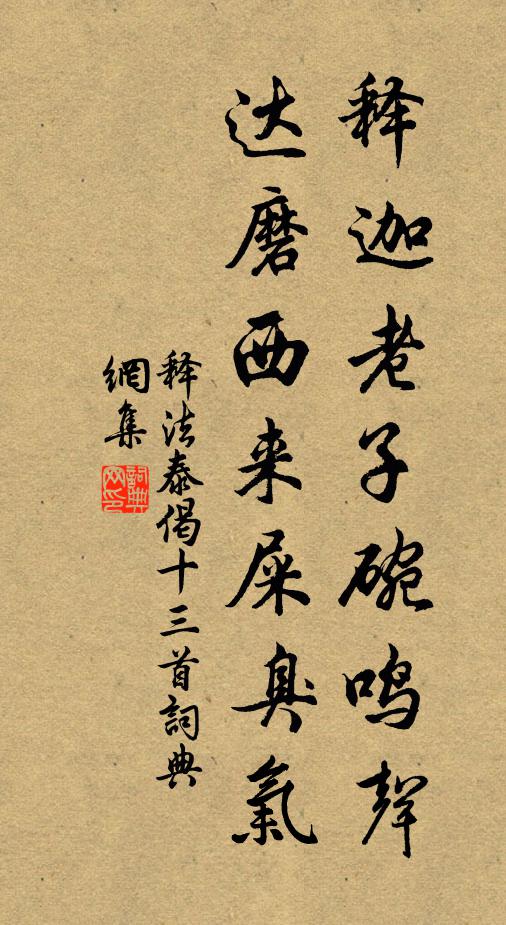 释迦老子碗鸣声
达磨西来屎臭氣
释法泰偈十三首詞典
網集
詞典
网印